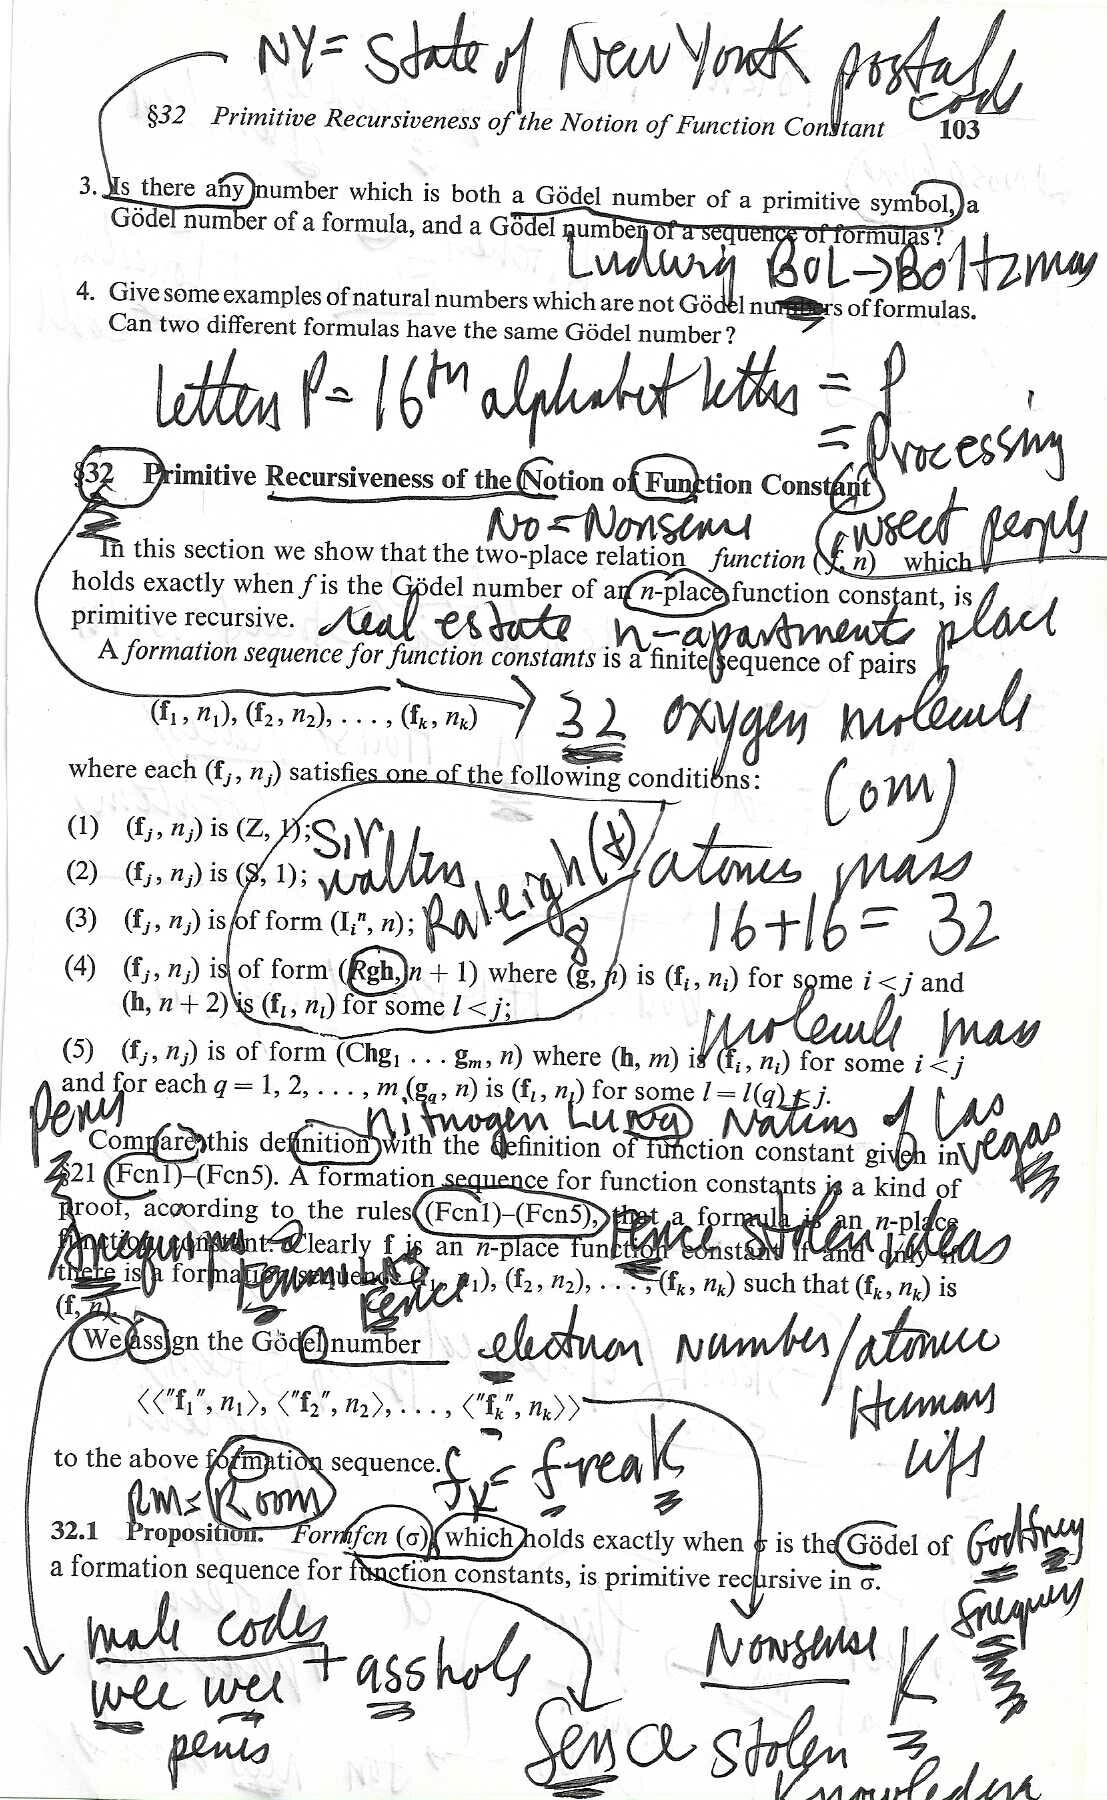 NY = State of New York postal
code
§32 Primitive Recursiveness of the Notion of Function Constant 103
3. Is there any number which is both a Gödel number of a primitive symbol, a
Gödel number of a formula, and a Gödel number of a sequence of formulas?
Ludwig BOL → Boltzman
4. Give some examples of natural numbers which are not Gödel numbers of formulas.
Can two different formulas have the same Gödel number?
letters P = 16th alphabet letters = P
= Processing
§32 Primitive Recursiveness of the Notion of Function Constant
No = Nonsense insect people
In this section we show that the two-place relation function (f, n) which
holds exactly when f is the Gödel number of an n-place function constant, is
primitive recursive. real estate n-apartments place
A formation sequence for function constants is a finite sequence of pairs
(f₁, n₁), (f₂, n₂), . . . , (fₖ, nₖ) 32 oxygen molecule
where each (fⱼ, nⱼ) satisfies one of the following conditions:
(om)
(1) (fⱼ, nⱼ) is (Z, 1); Sir
(2) (fⱼ, nⱼ) is (S, 1); walters Raleigh (t)/8 atomic mass
(3) (fⱼ, nⱼ) is of form (Iᵢⁿ, n); 16+16 = 32
(4) (fⱼ, nⱼ) is of form (Rgh, n + 1) where (g, n) is (fᵢ, nᵢ) for some i < j and
(h, n + 2) is (fₗ, nₗ) for some l < j;
molecule mass
(5) (fⱼ, nⱼ) is of form (Chg₁ . . . gₘ, n) where (h, m) is (fᵢ, nᵢ) for some i < j
and for each q = 1, 2, . . . , m (g_q, n) is (fₗ, nₗ) for some l = l(q) < j.
penis nitrogen Lung Nations of Las
Vegas
Compare this definition with the definition of function constant given in
§21 (Fcn1)–(Fcn5). A formation sequence for function constants is a kind of
proof, according to the rules (Fcn1)–(Fcn5), that a formula is an n-place
Fence stolen ideas
function constant. Clearly f is an n-place function constant if and only if
there is a formation sequence (f₁, n₁), (f₂, n₂), . . . , (fₖ, nₖ) such that (fₖ, nₖ) is
Fence
(f, n).
We assign the Gödel number electron number/atomic
Humans
⟨⟨"f₁", n₁⟩, ⟨"f₂", n₂⟩, . . . , ⟨"fₖ", nₖ⟩⟩
to the above formation sequence. fK = freaK
Rm = Room
32.1 Proposition. Formfcn (σ), which holds exactly when σ is the Gödel of Godfrey
a formation sequence for function constants, is primitive recursive in σ.
male codes
wee wee + asshole Nonsense K
penis Sense stolen